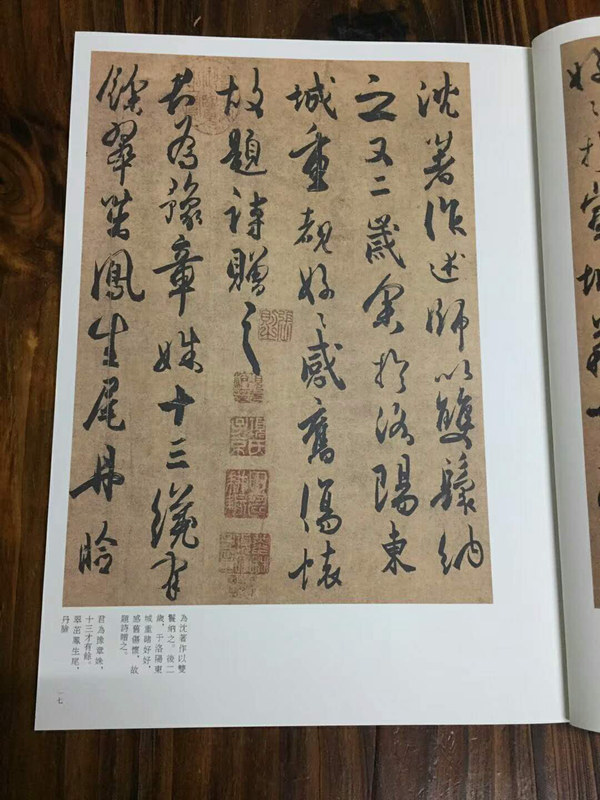 好〻於宣城籍中
沈著作述師以雙鬟納
之又二歲余於洛陽東
城重覩好〻感舊傷懷
故題詩贈之
君為豫章姝十三纔有
餘翠茁鳳生尾丹臉
為沈著作以雙
鬟納之。後二
歲，于洛陽東
城重睹好好，
感舊傷懷，故
題詩贈之。
君為豫章姝，
十三才有餘。
翠茁鳳生尾，
丹臉
一七